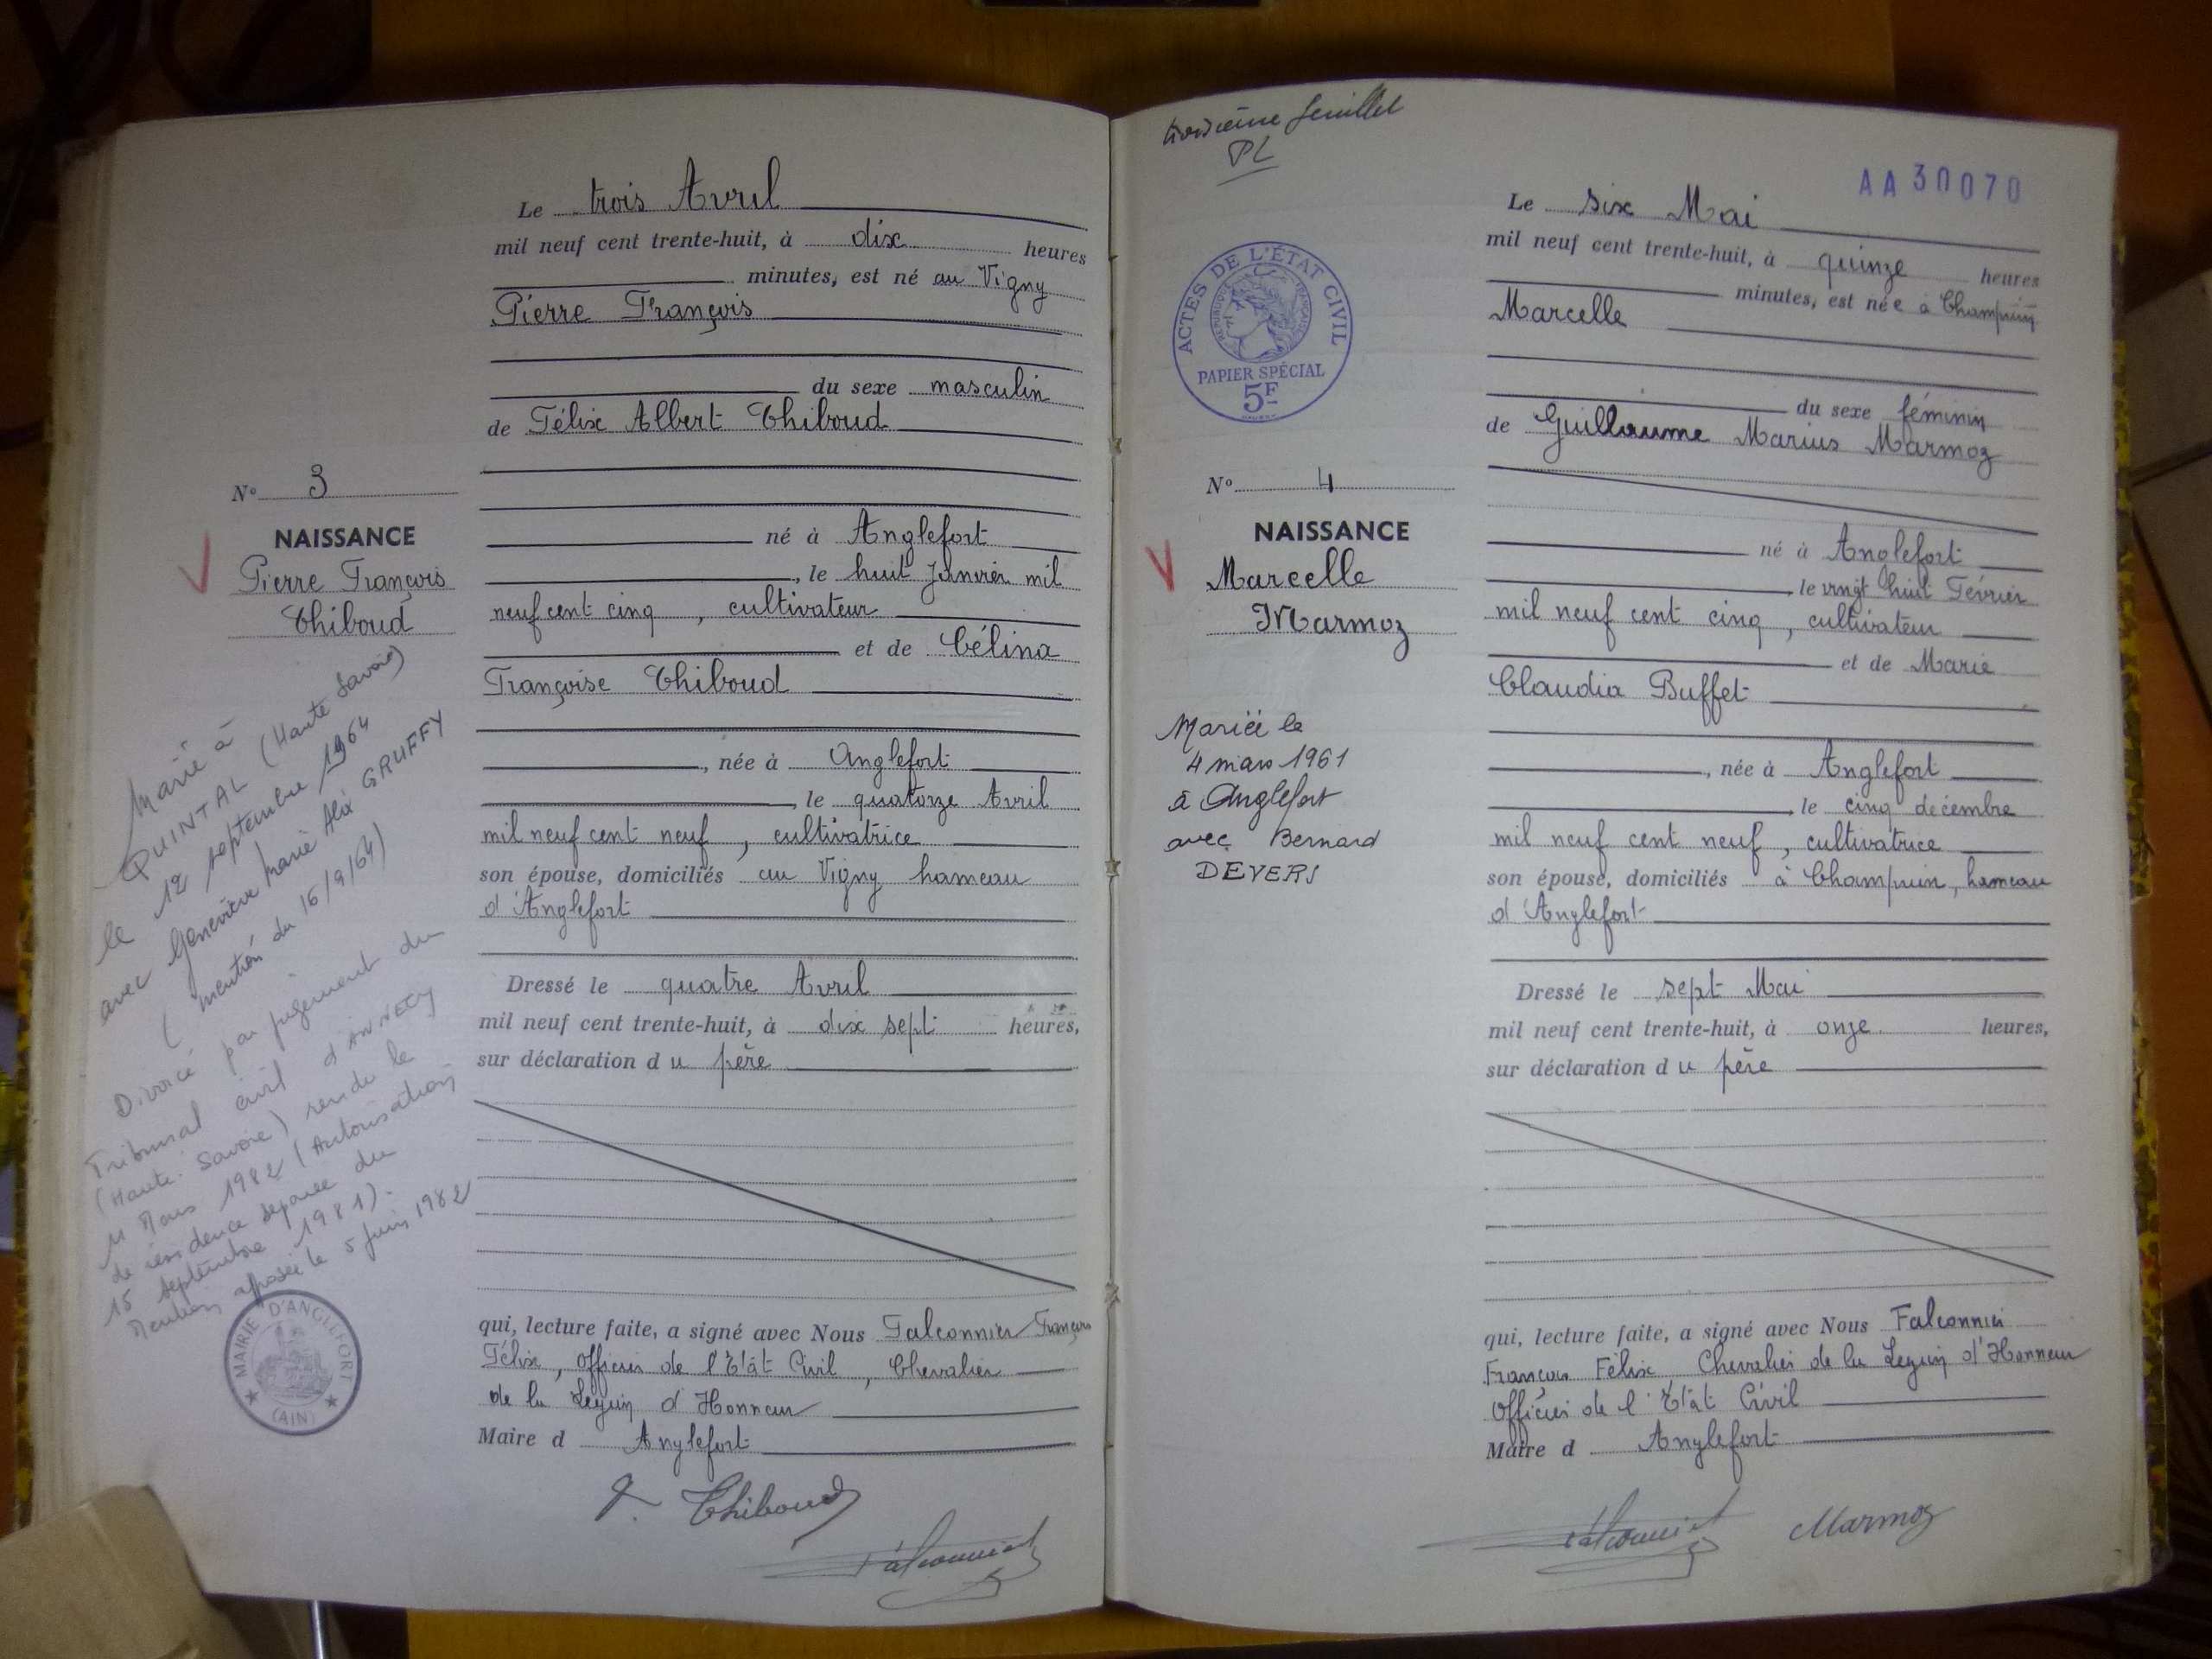 Le trois Avril
mil neuf cent trente-huit, à dix heures
minutes, est né au Vigny
Pierre François
du sexe masculin
de Félix Albert Thiboud
né à Anglefort
, le huit Janvier mil
neuf cent cinq, cultivateur
et de Célina
Françoise Thiboud
, née à Anglefort
, le quatorze Avril
mil neuf cent neuf, cultivatrice
son épouse, domiciliés au Vigny hameau
d'Anglefort
Dressé le quatre Avril
mil neuf cent trente-huit, à dix sept heures,
sur déclaration du père
qui, lecture faite, a signé avec Nous Falconnier François
Félix, Officier de l'Etat Civil, Chevalier
de la Légion d'Honneur
Maire d Anglefort
Thiboud
Falconnier
N° 3
NAISSANCE
Pierre François
Thiboud
Marié à
QUINTAL (Haute Savoie)
le 12 septembre 1964
avec Geneviève Marie Alix GRUFFY
(mention du 16/9/64)
Divorcé par jugement du
Tribunal civil d'ANNECY
(Haute-Savoie) rendu le
11 Mars 1982 (Autorisation
de résidence séparée du
15 Septembre 1981).
Mention apposée le 5 Juin 1982
MAIRIE D'ANGLEFORT
(AIN)
troisième feuillet
PL
AA30070
ACTES DE L'ÉTAT CIVIL
RÉPUBLIQUE FRANÇAISE
PAPIER SPÉCIAL
5F
Le six Mai
mil neuf cent trente-huit, à quinze heures
minutes, est née à Champrion
Marcelle
du sexe féminin
de Guillaume Marius Marmoz
né à Anglefort
le vingt huit Février
mil neuf cent cinq, cultivateur
et de Marie
Claudia Buffet
, née à Anglefort
le cinq décembre
mil neuf cent neuf, cultivatrice
son épouse, domiciliés à hameau
d'Anglefort
Dressé le sept Mai
mil neuf cent trente-huit, à onze heures,
sur déclaration du père
qui, lecture faite, a signé avec Nous Falconnier
François Félix Chevalier de la Légion d'Honneur
Officier de l'Etat Civil
Maire d Anglefort
Falconnier Marmoz
N° 4
NAISSANCE
Marcelle
Marmoz
Mariée le
4 mars 1961
à Anglefort
avec Bernard
DEVERS